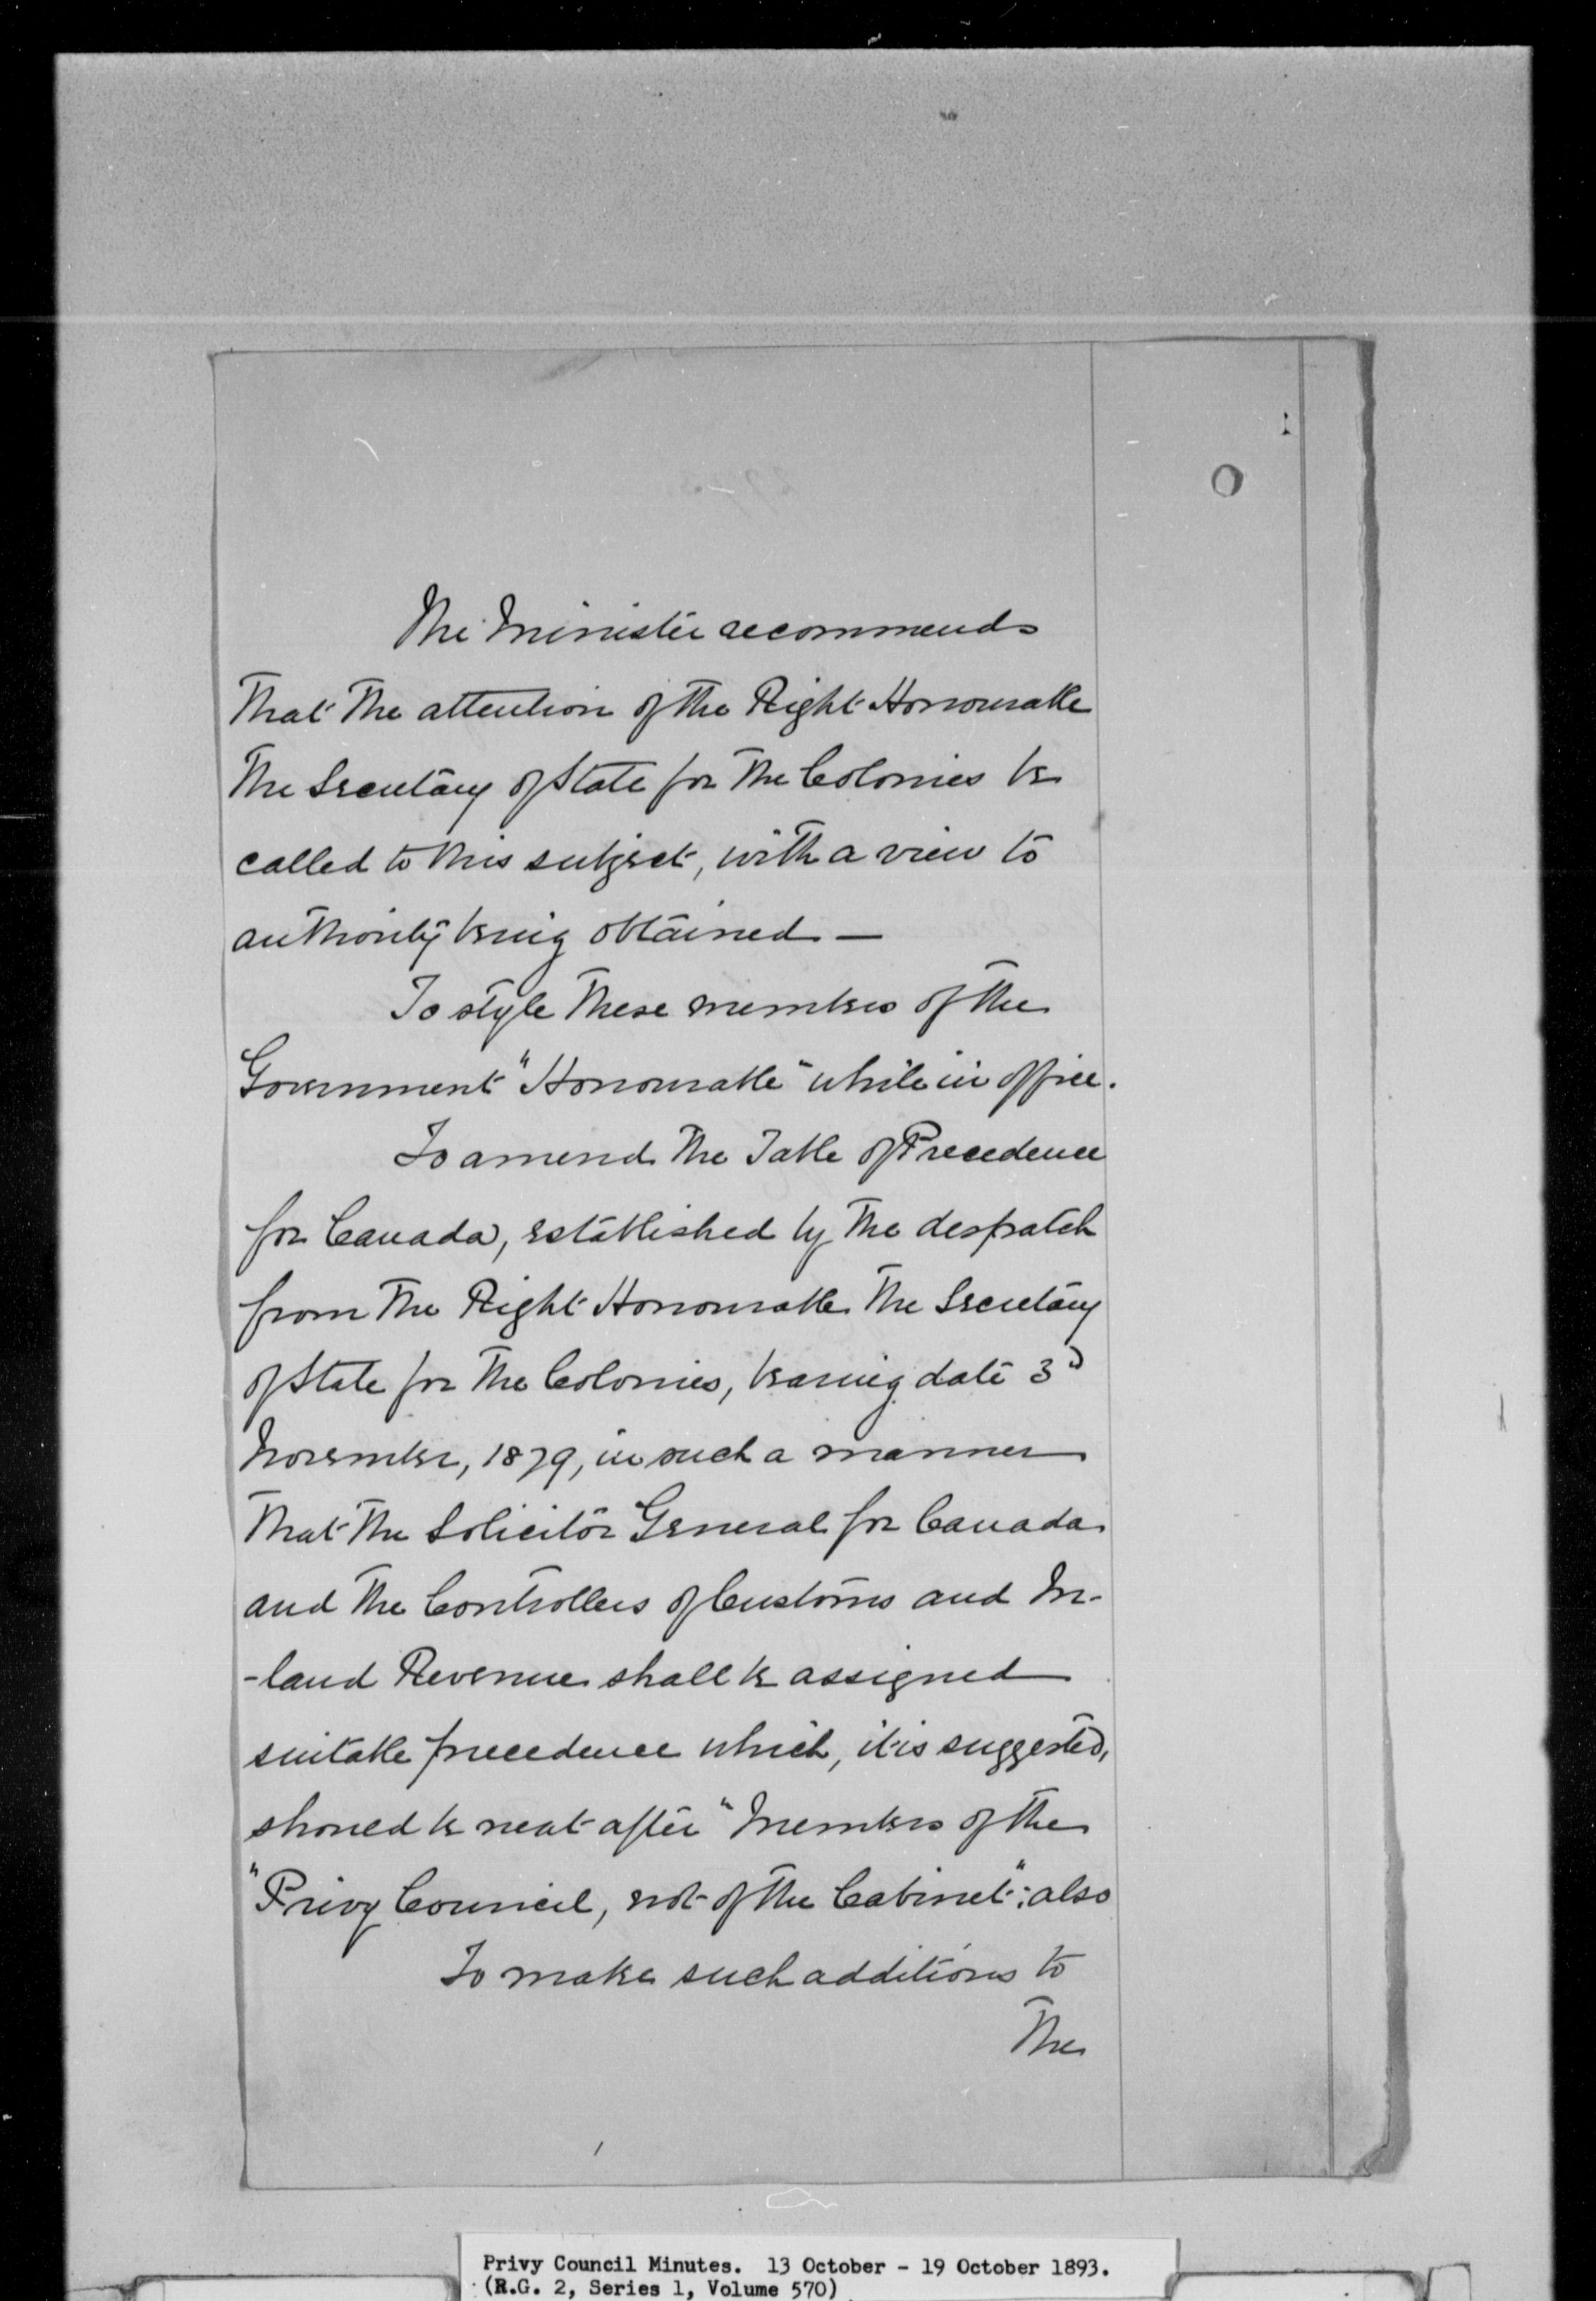 The Minister recommends
that the attention of the Right Honourable
the Secretary of State for the Colonies be
called to this subject, with a view to
authority being obtained —
To style these members of the
Government "Honourable" while in office.
To amend the Table of Precedence
for Canada, established by the despatch
from the Right Honourable the Secretary
of State for the Colonies, bearing date 3d
November, 1879, in such a manner
that the Solicitor General for Canada
and the Controllers of Customs and In-
-land Revenue shall be assigned
suitable precedence which, it is suggested,
should be next after "Members of the
"Privy Council, not of the Cabinet": also
To make such additions to
the
Privy Council Minutes. 13 October - 19 October 1893.
(R.G. 2, Series 1, Volume 570)